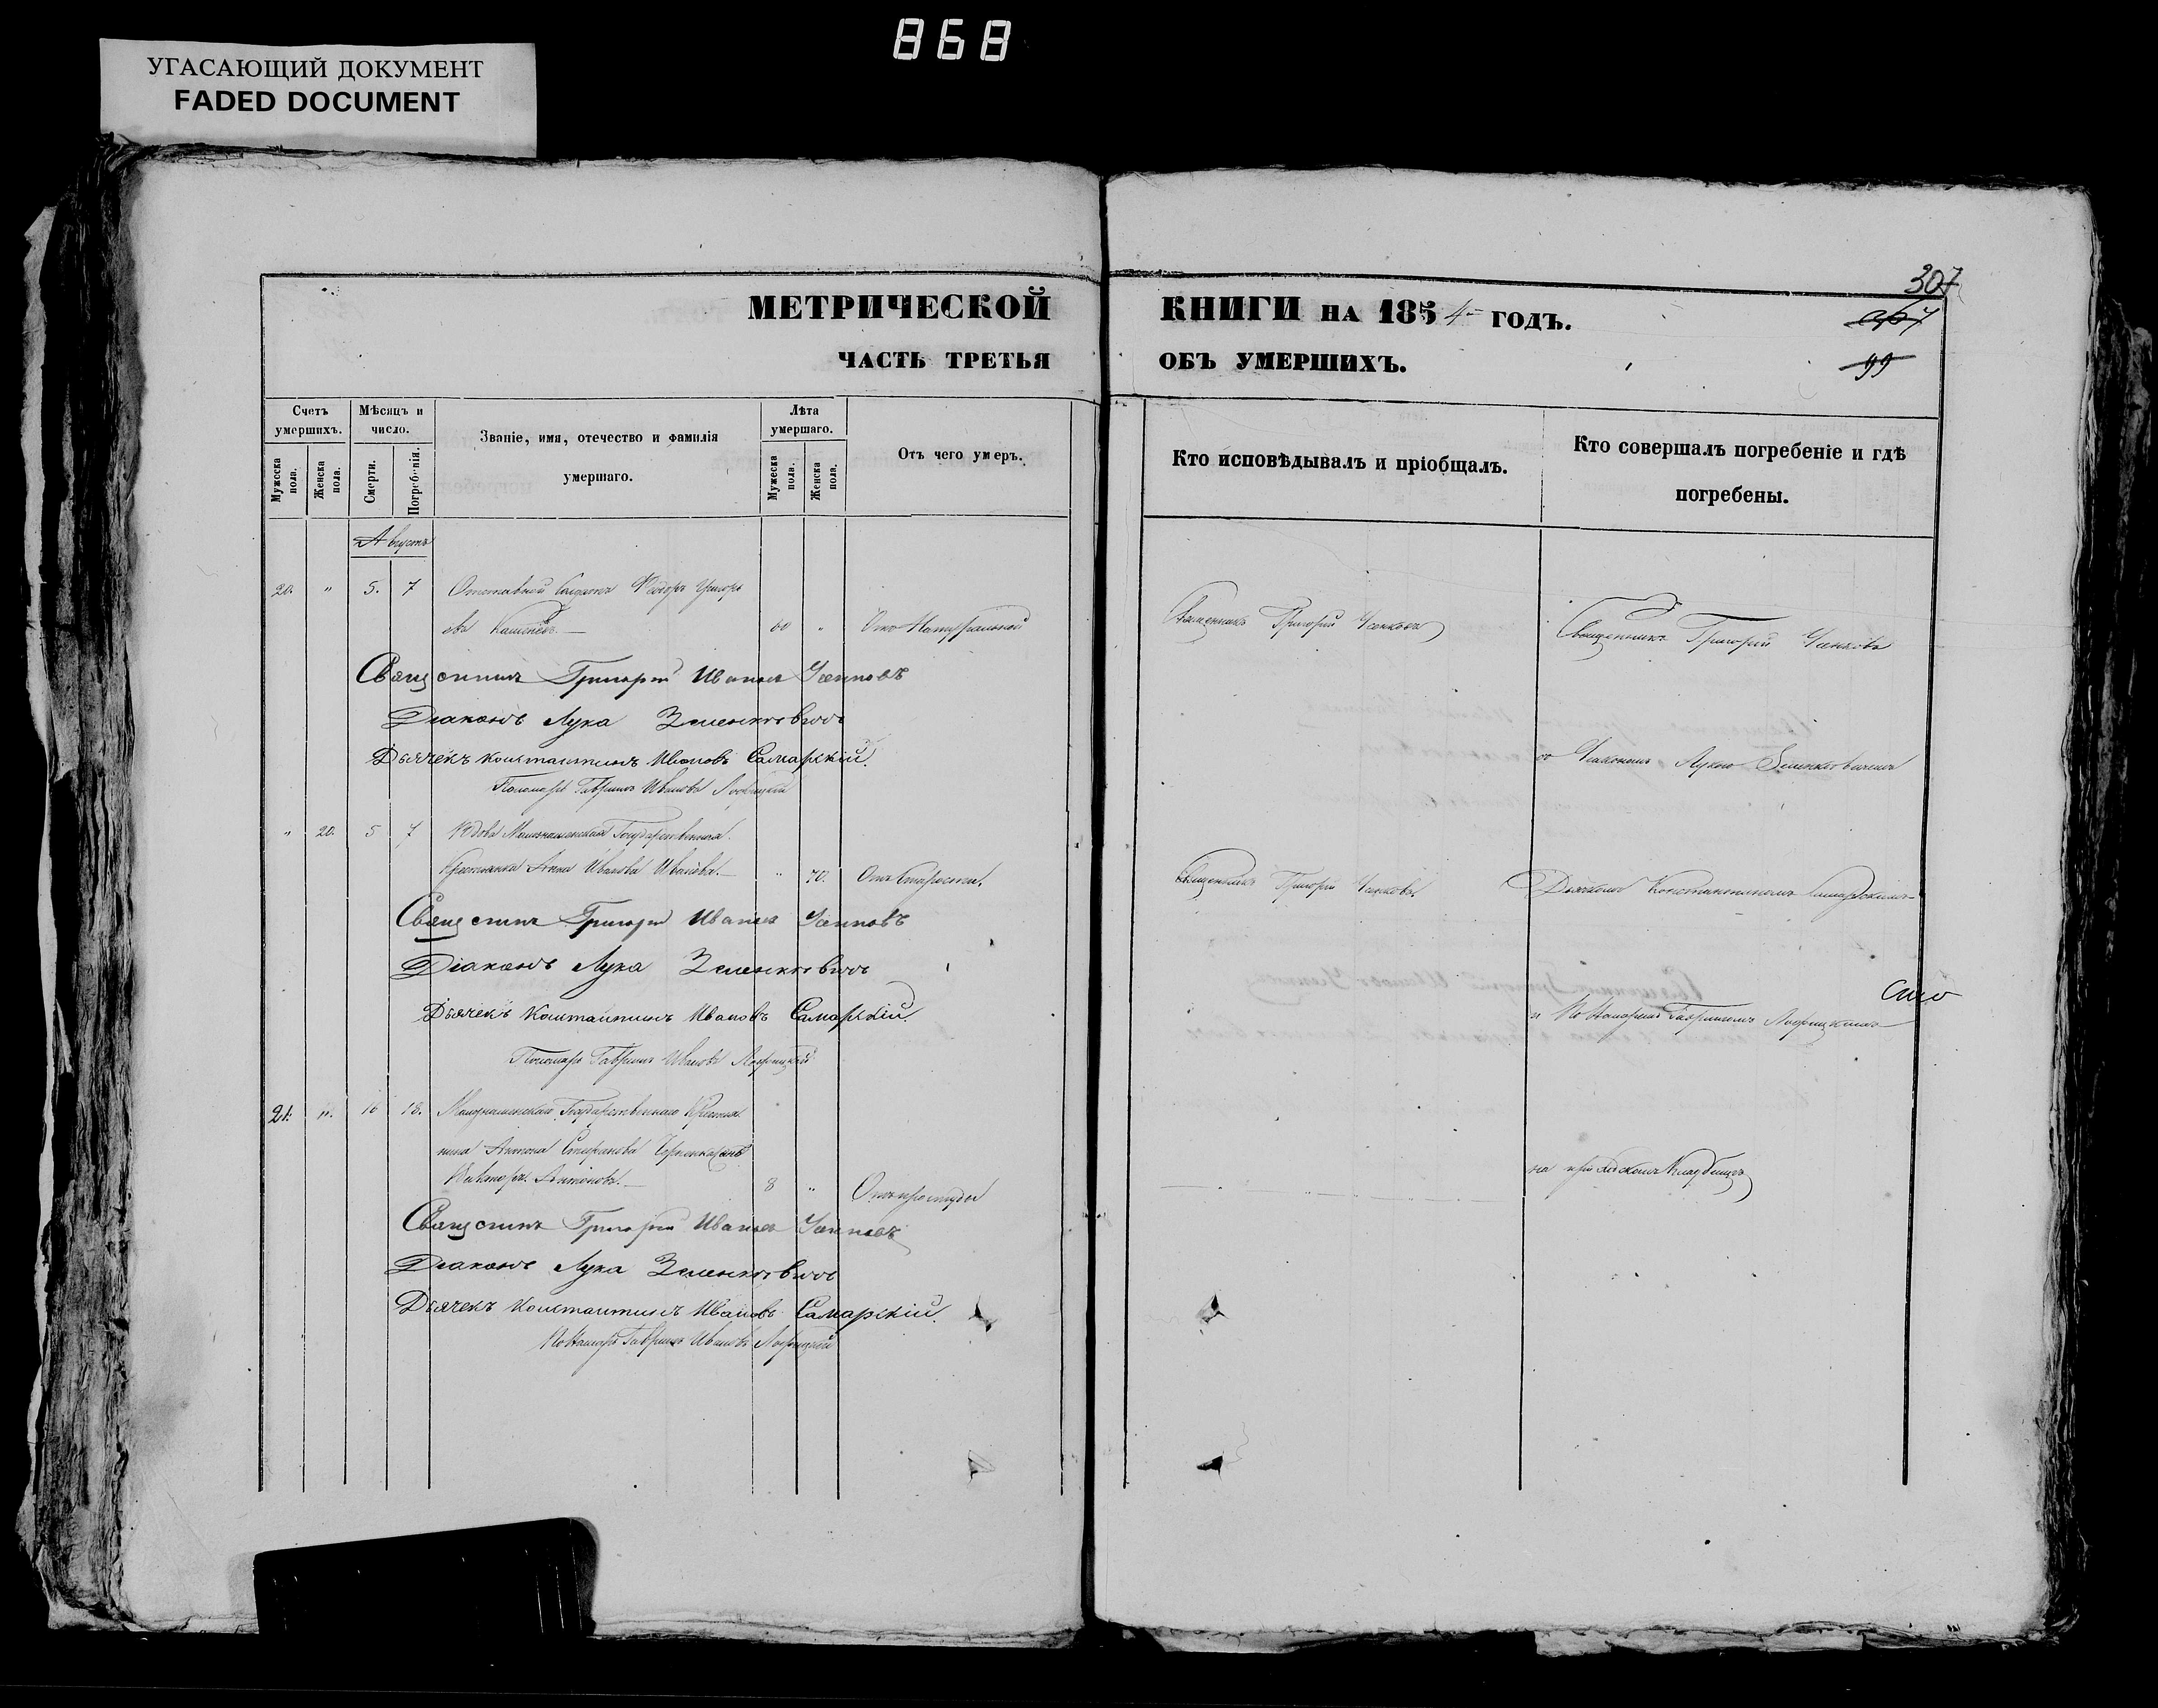 868
УГАСАЮЩИЙ ДОКУМЕНТ
FADED DOCUMENT
307
МЕТРИЧЕСКОЙ КНИГИ НА 1854 ГОДЪ.
99
ЧАСТЬ ТРЕТЬЯ ОБЪ УМЕРШИХЪ.
Счетъ умершихъ.
Мужеска пола.
Женска пола.
Мѣсяцъ и число.
Смерти.
Погребенія.
Званіе, имя, отечество и фамилія умершаго.
Лѣта умершаго.
Мужеска пола.
Женска пола.
Отъ чего умеръ.
Кто исповѣдывалъ и пріобщалъ.
Кто совершалъ погребеніе и гдѣ погребены.
Августъ
20. " 5. 7 Отставной Солдатъ Ѳедоръ Григорь
евъ 60 " Отъ Натуральной
Священникъ Григорій
Священникъ Григорій
Священникъ Григорій Иванов
Діаконъ Лука Зеленкевичъ
Дьячекъ Константинъ Ивановъ Самарскій.
Пономарь Гавріилъ Ивановъ
съ Діакономъ Лукою Зеленкевичемъ
" 20. 5 7 Вдова Государственная
Крестьянка Анна Иванова " 70. Отъ Старости.
Священникъ Григорій
Дьячкомъ Константиномъ Самарскимъ
Священникъ Григорій Иванов
Діаконъ Лука Зеленкевичъ
Дьячекъ Константинъ Ивановъ Самарскій.
и Пономаремъ Гавріиломъ
Пономарь Гавріилъ Ивановъ
21. ". 16 18. Государственнаго Крестья
нина Антона Стефанова сынъ
Викторъ Антоновъ. 8 " Отъ простуды
на приходскомъ Кладбищѣ
Священникъ Григорій Иванов
Діаконъ Лука Зеленкевичъ
Дьячекъ Константинъ Ивановъ Самарскій.
Пономарь Гавріилъ Ивановъ